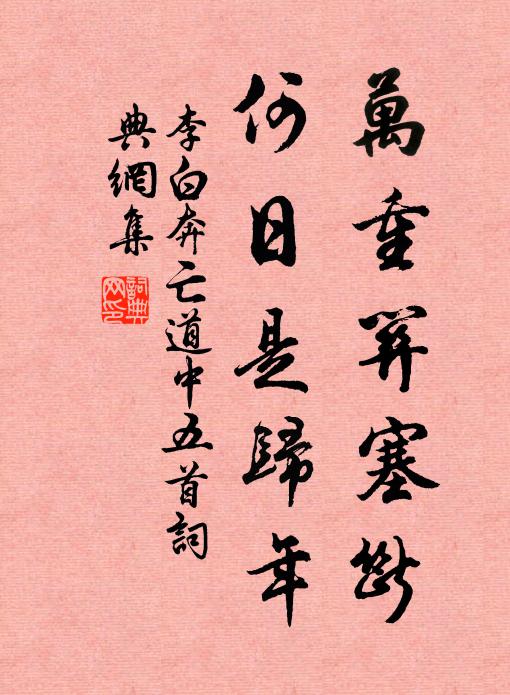 萬重關塞斷
何日是歸年
李白奔亡道中五首詞
典網集
詞典
网印